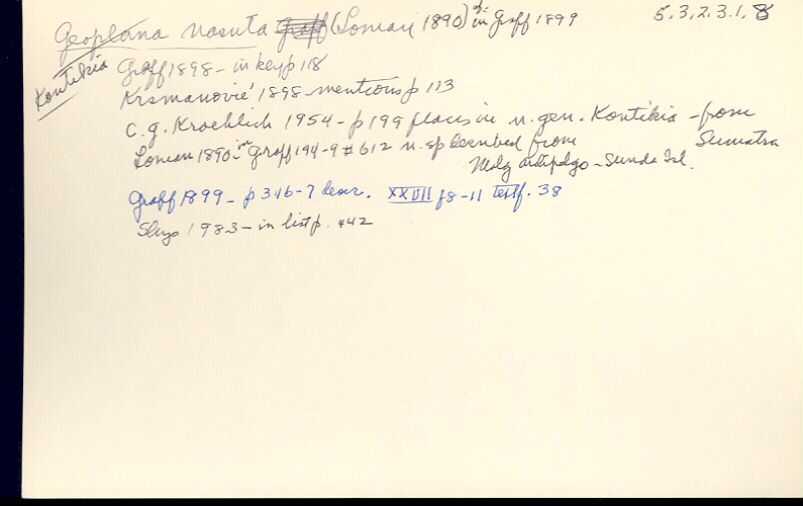 Geoplana nasuta Graff (Loman 1890) in Graff 1899
5.3.2.3.1.8
Kontikia
Graff 1898 - in key p 118
Krsmanović 1898 - mentions p 113
C.g. Froehlich 1954 - p 199 places in n. gen. Kontikia - from Sumatra
Loman 1890 in Graff 194-9 #612 n. sp described from
Maly archipelgo - Sunda Isl.
Graff 1899 - p 346-7 descr. XXVIII f8-11 textf. 38
Sluys 1983 - in list p. 442